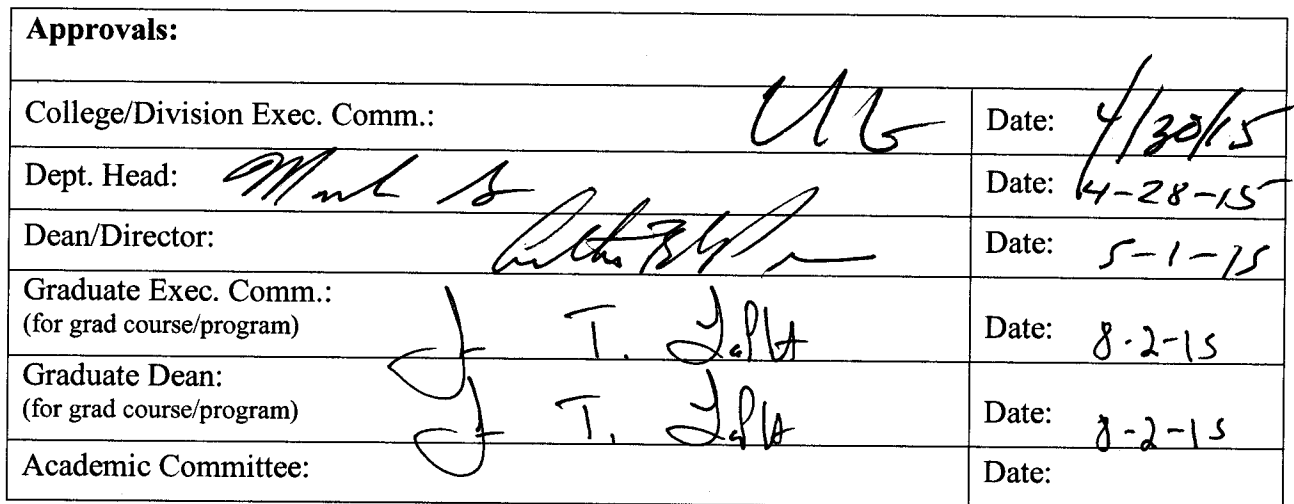 Approvals:
College/Division Exec. Comm.: Date: 4/30/15
Dept. Head: Date: 4-28-15
Dean/Director: Date: 5-1-15
Graduate Exec. Comm.:
(for grad course/program) J T. Date: 8-2-15
Graduate Dean:
(for grad course/program) J T. Date: 8-2-15
Academic Committee: Date: